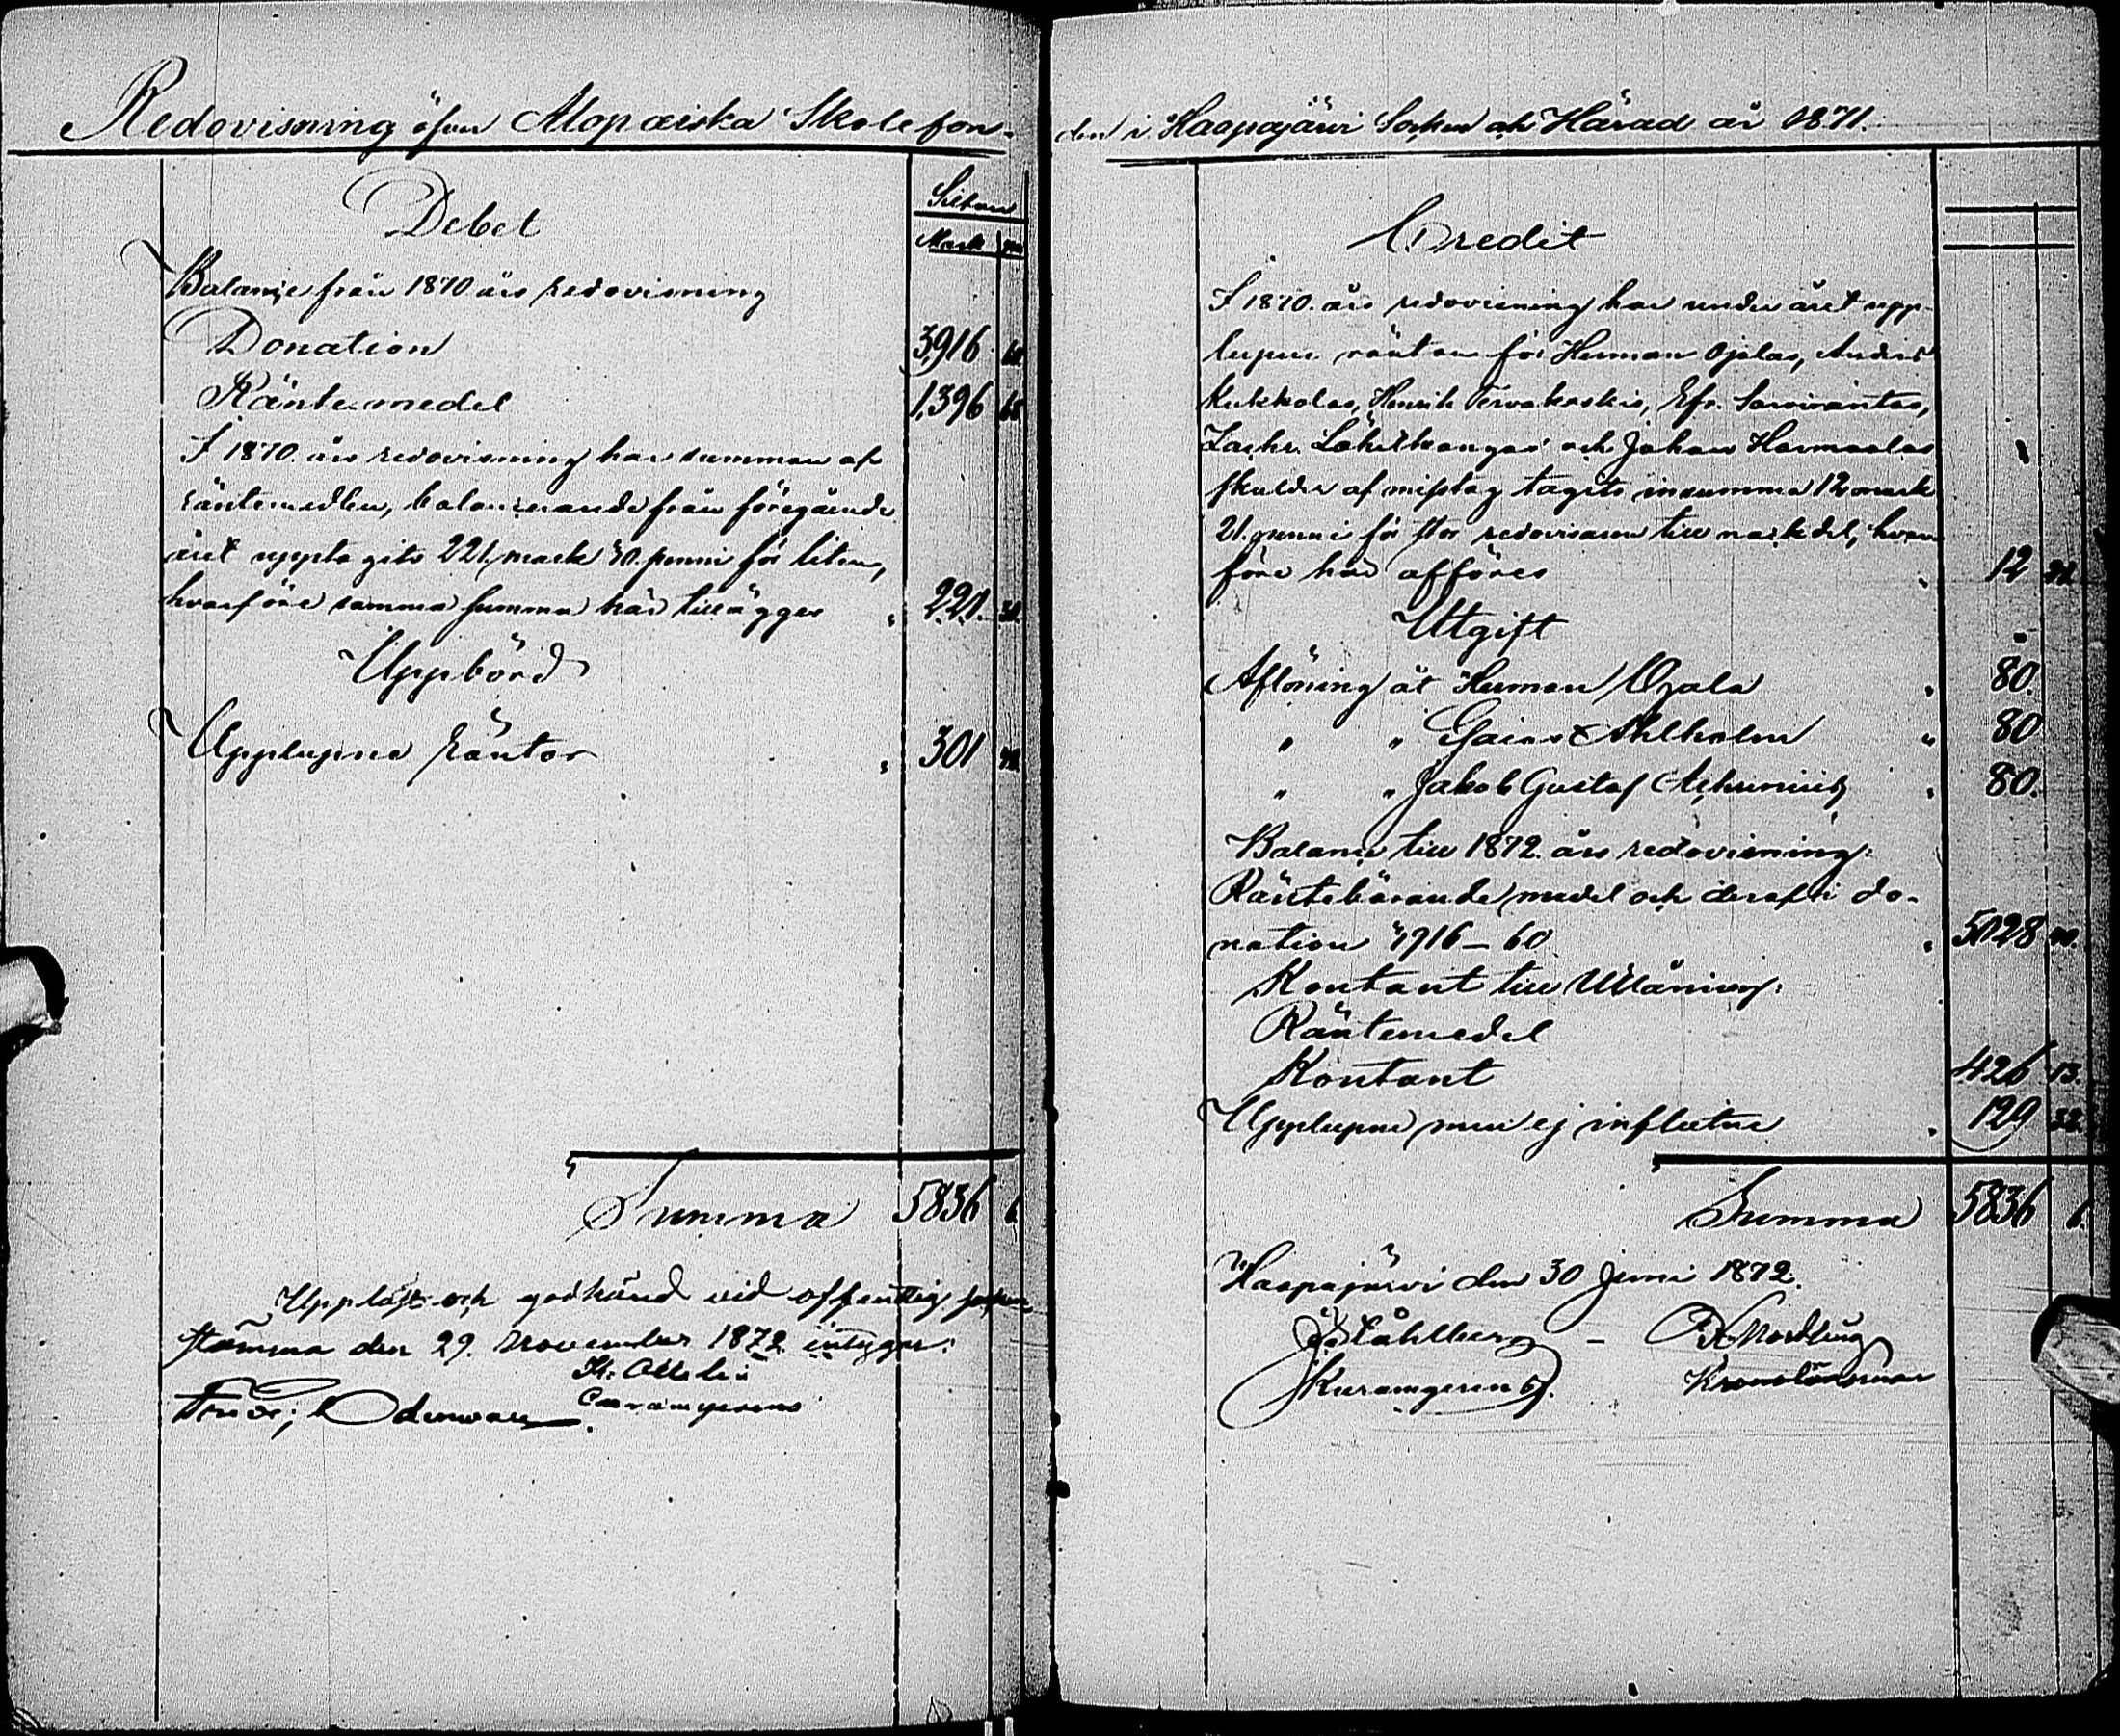 Redovisning öfver Alopæiska Skolefon-
Debet
Silfver
Mark
Balance från 1870 års redovisning
Donation 3,916 60
Räntemedel 1,396 68
I 1870 års redovisning har summan af
räntemedlen, balancerande från föregående
året upptagits 221 mark 30 penni för liten,
hvarföre samma summa här tillägges " 221 30
Uppbörd
Upplupne räntor " 301
Summa 5836 6
Uppläst och godkänd vid offentlig
stämma den 29. November 1872 intygar:
K.
den i Haapajärvi Socken och Härad år 1871.
Credit
I 1870 års redovisning har under året upp-
lupne räntor för Herman Ojalas, Anders
Kukkolas, Henrik Tervakoskis, Efr.
Zachr. och Johan
skulder af misstag tagits insumma 12 mark
21 penni för stor redovisaren till nackdel, hvar-
före här afföres " 12 21
Utgift
Aflöning åt Herman Ojala " 80.
" " Gaius Ahlholm " 80
" " Jakob Gustaf " 80.
Balance till 1872 års redovisning:
Räntebärande medel och deraf i do-
nation 3916 – 60 " 5028
Kontant till Utlåning:
Räntemedel
Kontant 426 13.
Upplupne men ej influtne " 129 32
Summa 5836 6
Haapajärvi den 30 Juni 1872.
Ståhlberg – Nordlung
Kronolänsman